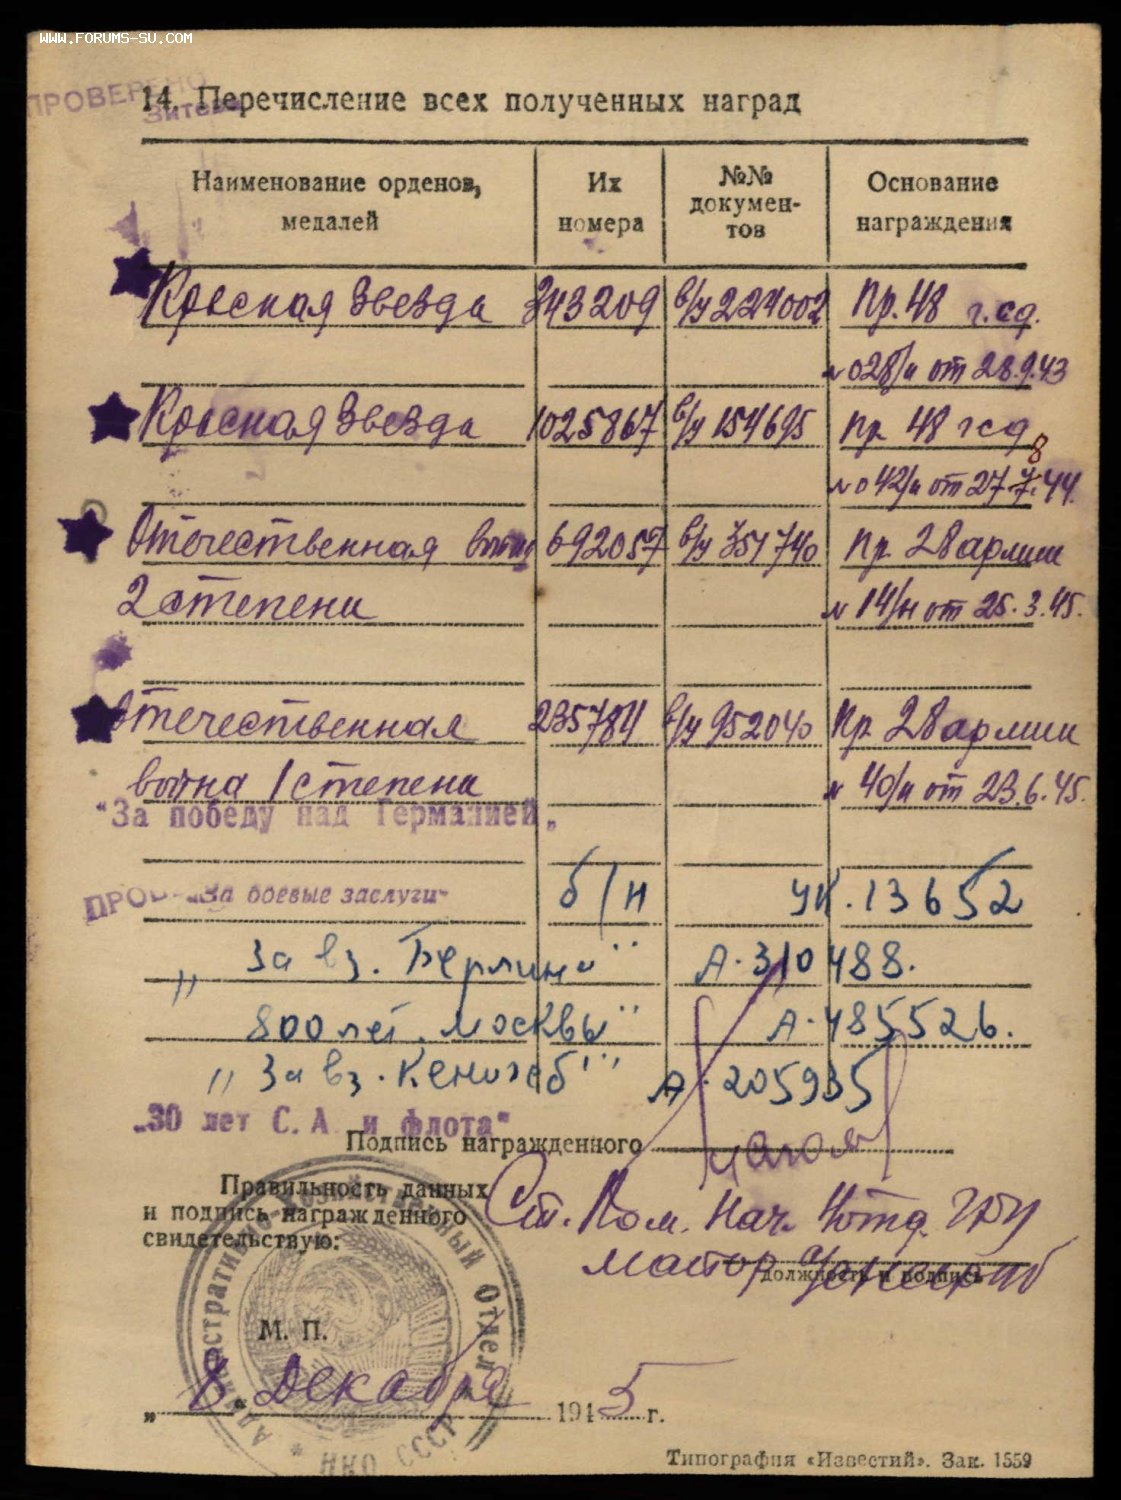 WWW.FORUMS-SU.COM
ПРОВЕРЕНО
14. Перечисление всех полученных наград
Наименование орденов, медалей
Их номера
№№ докумен-тов
Основание награждения
Красная Звезда 343209 в/у 224002 Пр. 48 г.сд.
N 028/н от 28.9.43
Красная Звезда 1025867 в/у 154695 Пр 48 гсд
N 042/н от 27.8.44.
Отечественная война 692057 в/у 351740 Пр 28 армии
2 степени N 14/н от 25.3.45.
Отечественная 235784 в/у 952040 Пр 28 армии
война 1 степени N 40/н от 23.6.45.
"За победу над Германией"
ПРОВ "За боевые заслуги" б/н УК. 13652
"За вз. Берлина" А. 310488.
800 лет Москвы" А. 485526.
"За вз. Кенигсб" А. 205935
"30 лет С. А. и флота"
Подпись награжденного
Правильность данных
и подпись награжденного
свидетельствую:
Ст. Пом. Нач. 4 отд. ГРУ
майор
должность и подпись
Административно-Хозяйственный Отдел
НКО СССР
М. П.
„8" Декабря 1945 г.
Типография «Известий». Зак. 1559